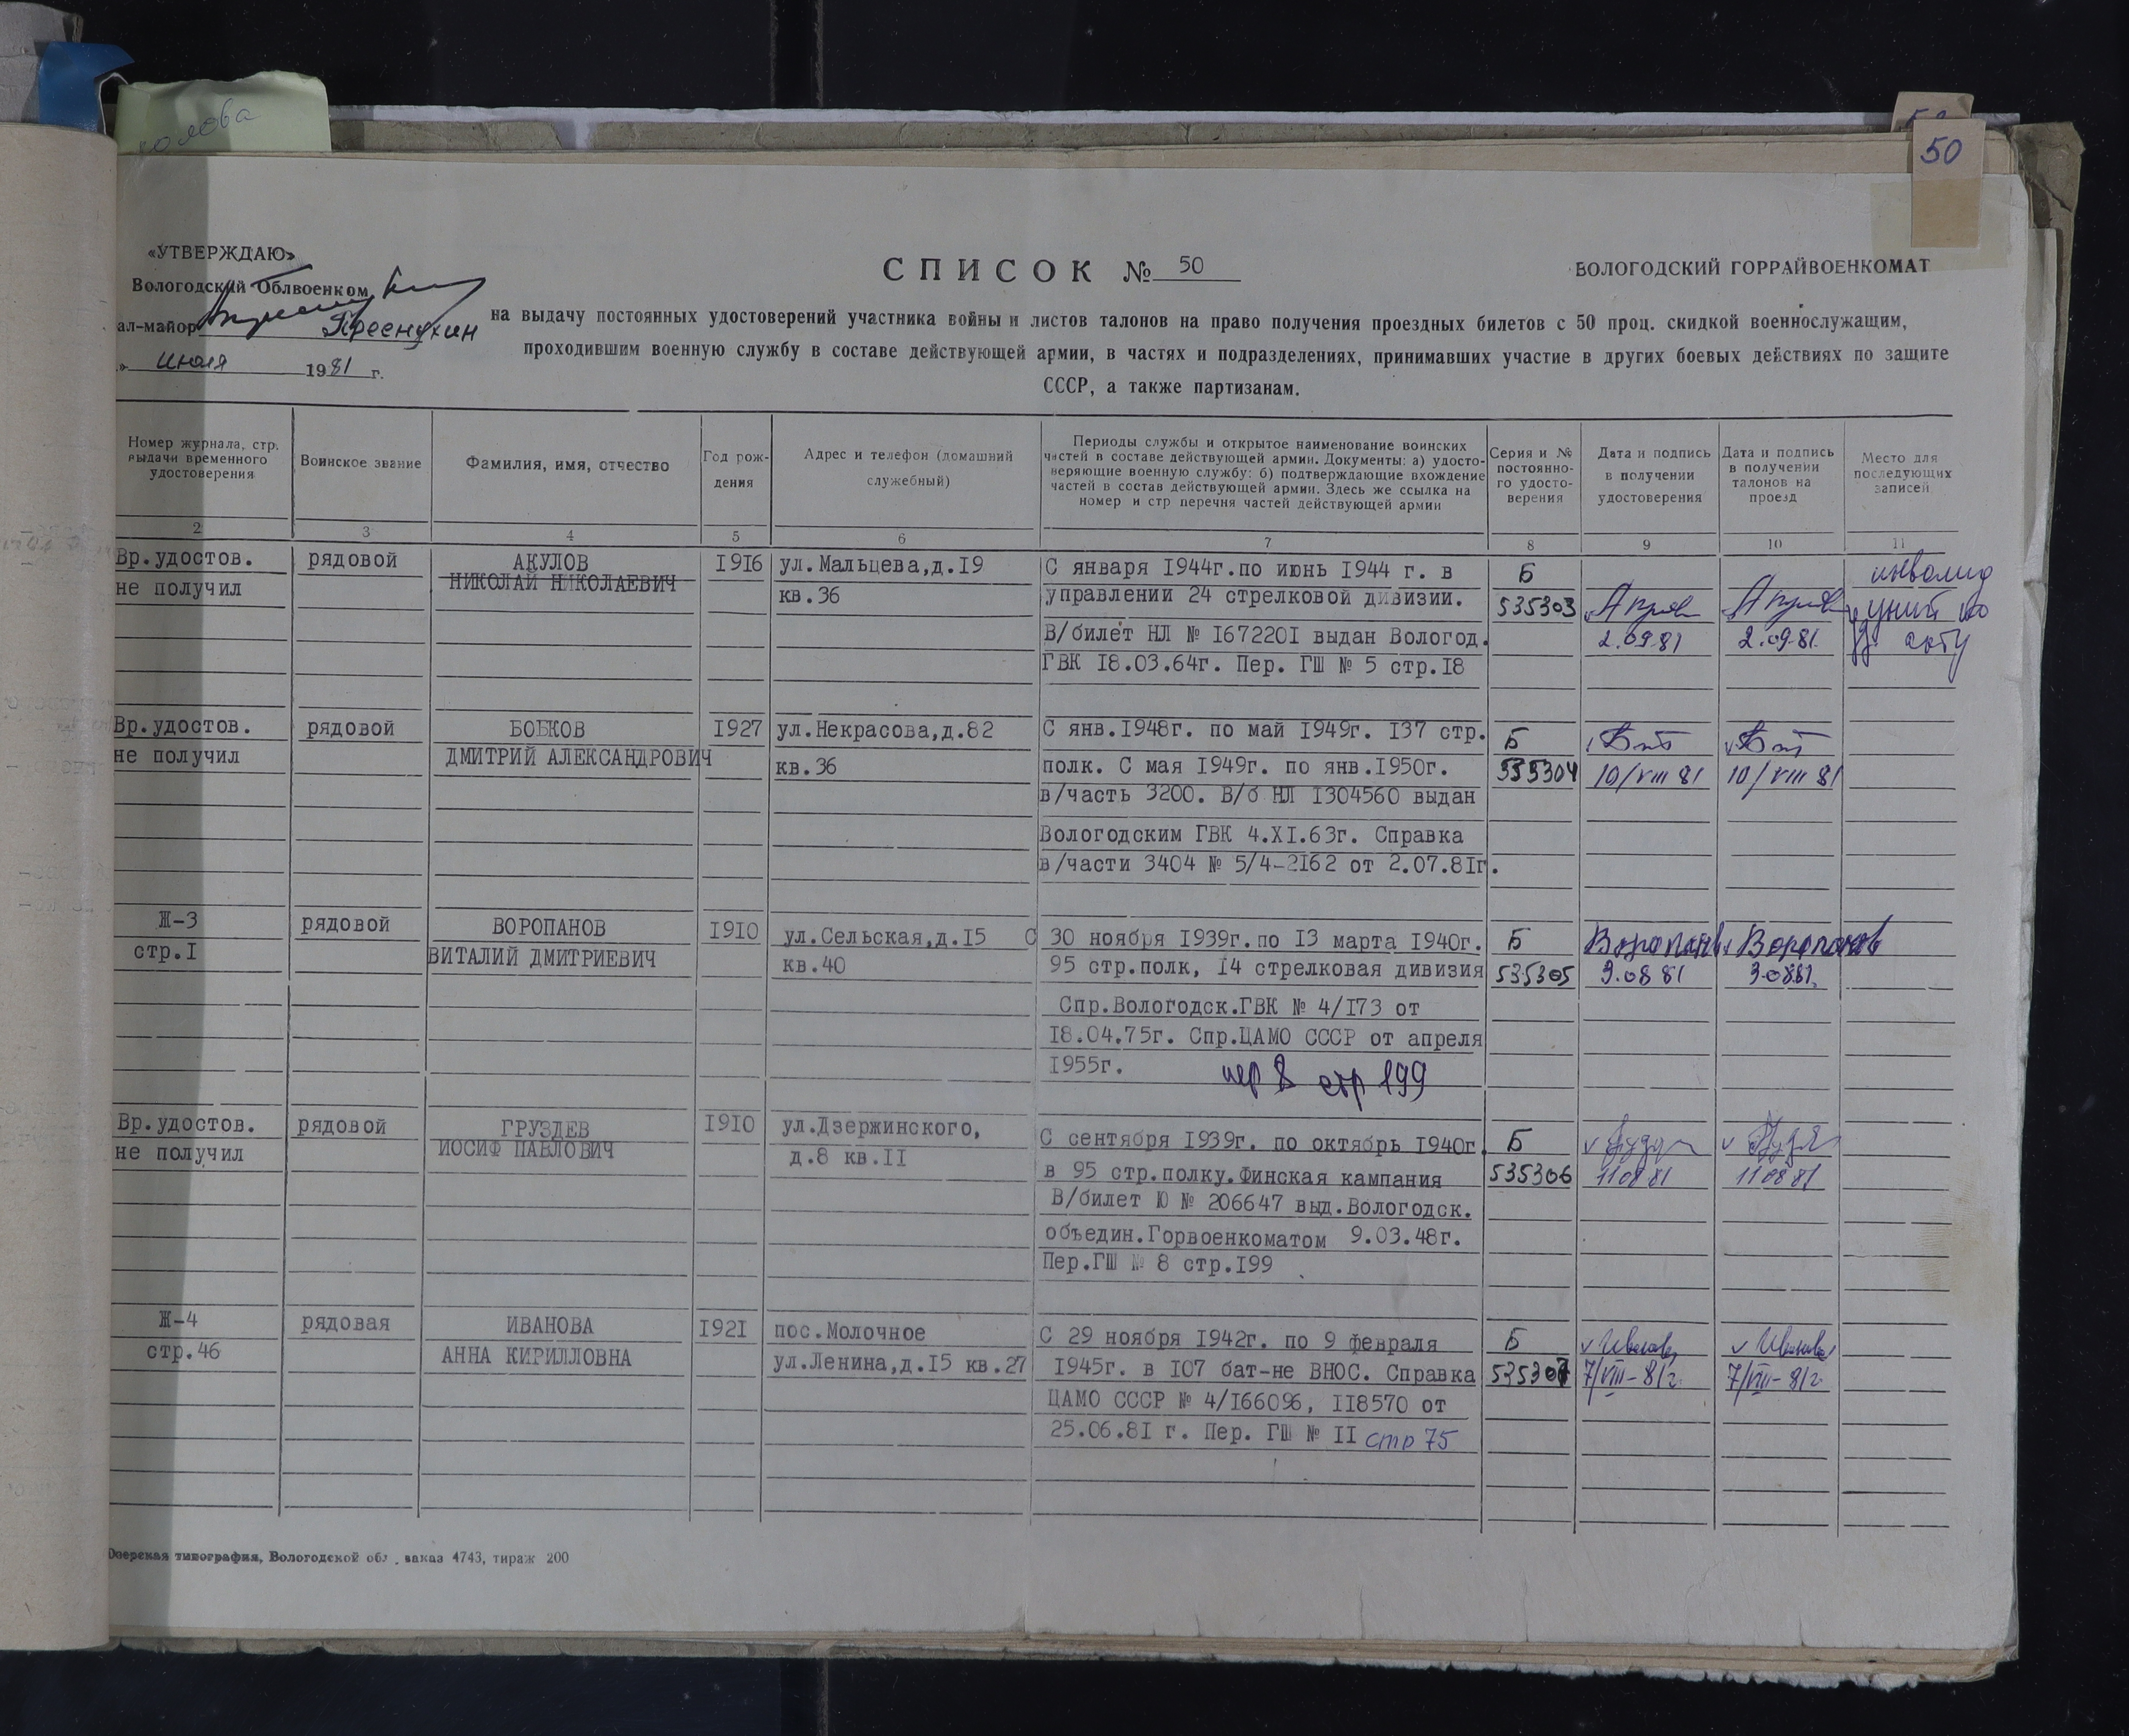 50
«УТВЕРЖДАЮ»
Вологодский Облвоенком
ал-майор
июля 1981 г.
СПИСОК № 50
ВОЛОГОДСКИЙ ГОРРАЙВОЕНКОМАТ
на выдачу постоянных удостоверений участника войны и листов талонов на право получения проездных билетов с 50 проц. скидкой военнослужащим,
проходившим военную службу в составе действующей армии, в частях и подразделениях, принимавших участие в других боевых действиях по защите
СССР, а также партизанам.
Номер журнала, стр.
выдачи временного
удостоверения
Воинское звание
Фамилия, имя, отчество
Год рож-
дения
Адрес и телефон (домашний
служебный)
Периоды службы и открытое наименование воинских
частей в составе действующей армии. Документы: а) удосто-
веряющие военную службу: б) подтверждающие вхождение
частей в состав действующей армии. Здесь же ссылка на
номер и стр перечня частей действующей армии
Серия и №
постоянно-
го удосто-
верения
Дата и подпись
в получении
удостоверения
Дата и подпись
в получении
талонов на
проезд
Место для
последующих
записей
2 3 4 5 6 7 8 9 10 11
Вр.удостов.
не получил
рядовой
АКУЛОВ
НИКОЛАЙ НИКОЛАЕВИЧ
1916
ул.Мальцева,д.19
кв.36
С января 1944г.по июнь 1944 г. в
управлении 24 стрелковой дивизии.
В/билет НЛ № 1672201 выдан Вологод.
ГВК 18.03.64г. Пер. ГШ № 5 стр.18
Б
535303
2.09.81
2.09.81.
инвалид
Вр.удостов.
не получил
рядовой
БОБКОВ
ДМИТРИЙ АЛЕКСАНДРОВИЧ
1927
ул.Некрасова,д.82
кв.36
С янв.1948г. по май 1949г. 137 стр.
полк. С мая 1949г. по янв.1950г.
в/часть 3200. В/б НЛ 1304560 выдан
Вологодским ГВК 4.XI.63г. Справка
в/части 3404 № 5/4-2162 от 2.07.81г.
Б
535304
10/VIII 81
10/VIII 81
Ж-3
стр.1
рядовой
ВОРОПАНОВ
ВИТАЛИЙ ДМИТРИЕВИЧ
1910
ул.Сельская,д.15
кв.40
С 30 ноября 1939г.по 13 марта 1940г.
95 стр.полк, 14 стрелковая дивизия
Спр.Вологодск.ГВК № 4/173 от
18.04.75г. Спр.ЦАМО СССР от апреля
1955г.
пер 8 стр 199
Б
535305
Воропанов
3.08 81
Воропанов
3.0881.
Вр.удостов.
не получил
рядовой
ГРУЗДЕВ
ИОСИФ ПАВЛОВИЧ
1910
ул.Дзержинского,
д.8 кв.11
С сентября 1939г. по октябрь 1940г.
в 95 стр.полку.Финская кампания
В/билет Ю № 206647 выд.Вологодск.
объедин.Горвоенкоматом 9.03.48г.
Пер.ГШ № 8 стр.199
Б
535306
11 08 81
11 08 81
Ж-4
стр.46
рядовая
ИВАНОВА
АННА КИРИЛЛОВНА
1921
пос.Молочное
ул.Ленина,д.15 кв.27
С 29 ноября 1942г. по 9 февраля
1945г. в 107 бат-не ВНОС. Справка
ЦАМО СССР № 4/166096, 118570 от
25.06.81 г. Пер. ГШ № 11 стр 75
Б
535307
v Иванова
7/VIII-81г.
v Иванова
7/VIII-81г.
Озерская типография, Вологодской обл., заказ 4743, тираж 200